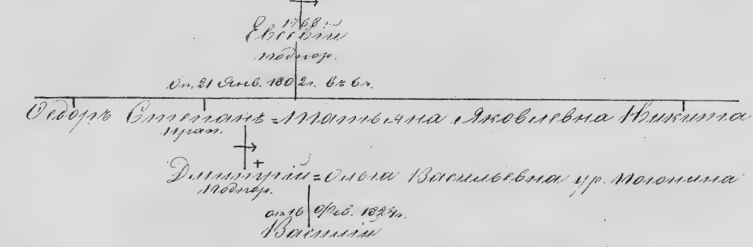 1768 г.
Евсевій
подпор.
Оп. 21 Янв. 1802 г. 6 ч. 6 ч.
Ѳедоръ Степанъ = Татьяна Яковлевна Никита
прап.
Дмитрій = Ольга Васильевна ур.
подпор.
16 Фев. 1827 г.
Василій